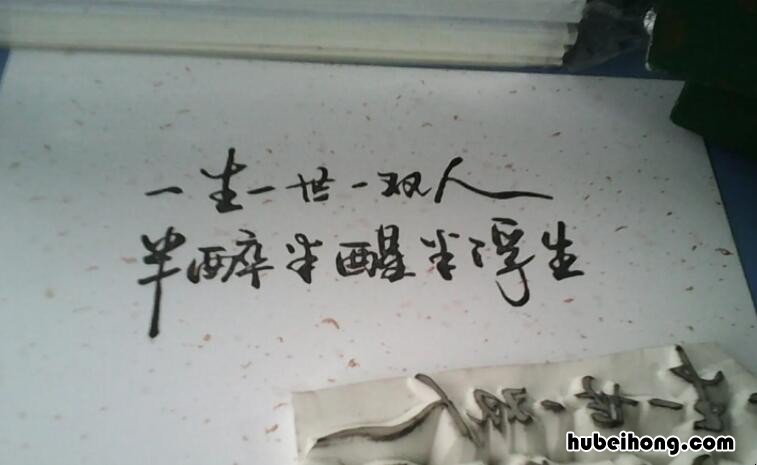 一生一世一双人
半醉半醒半浮生
hubeihong.com